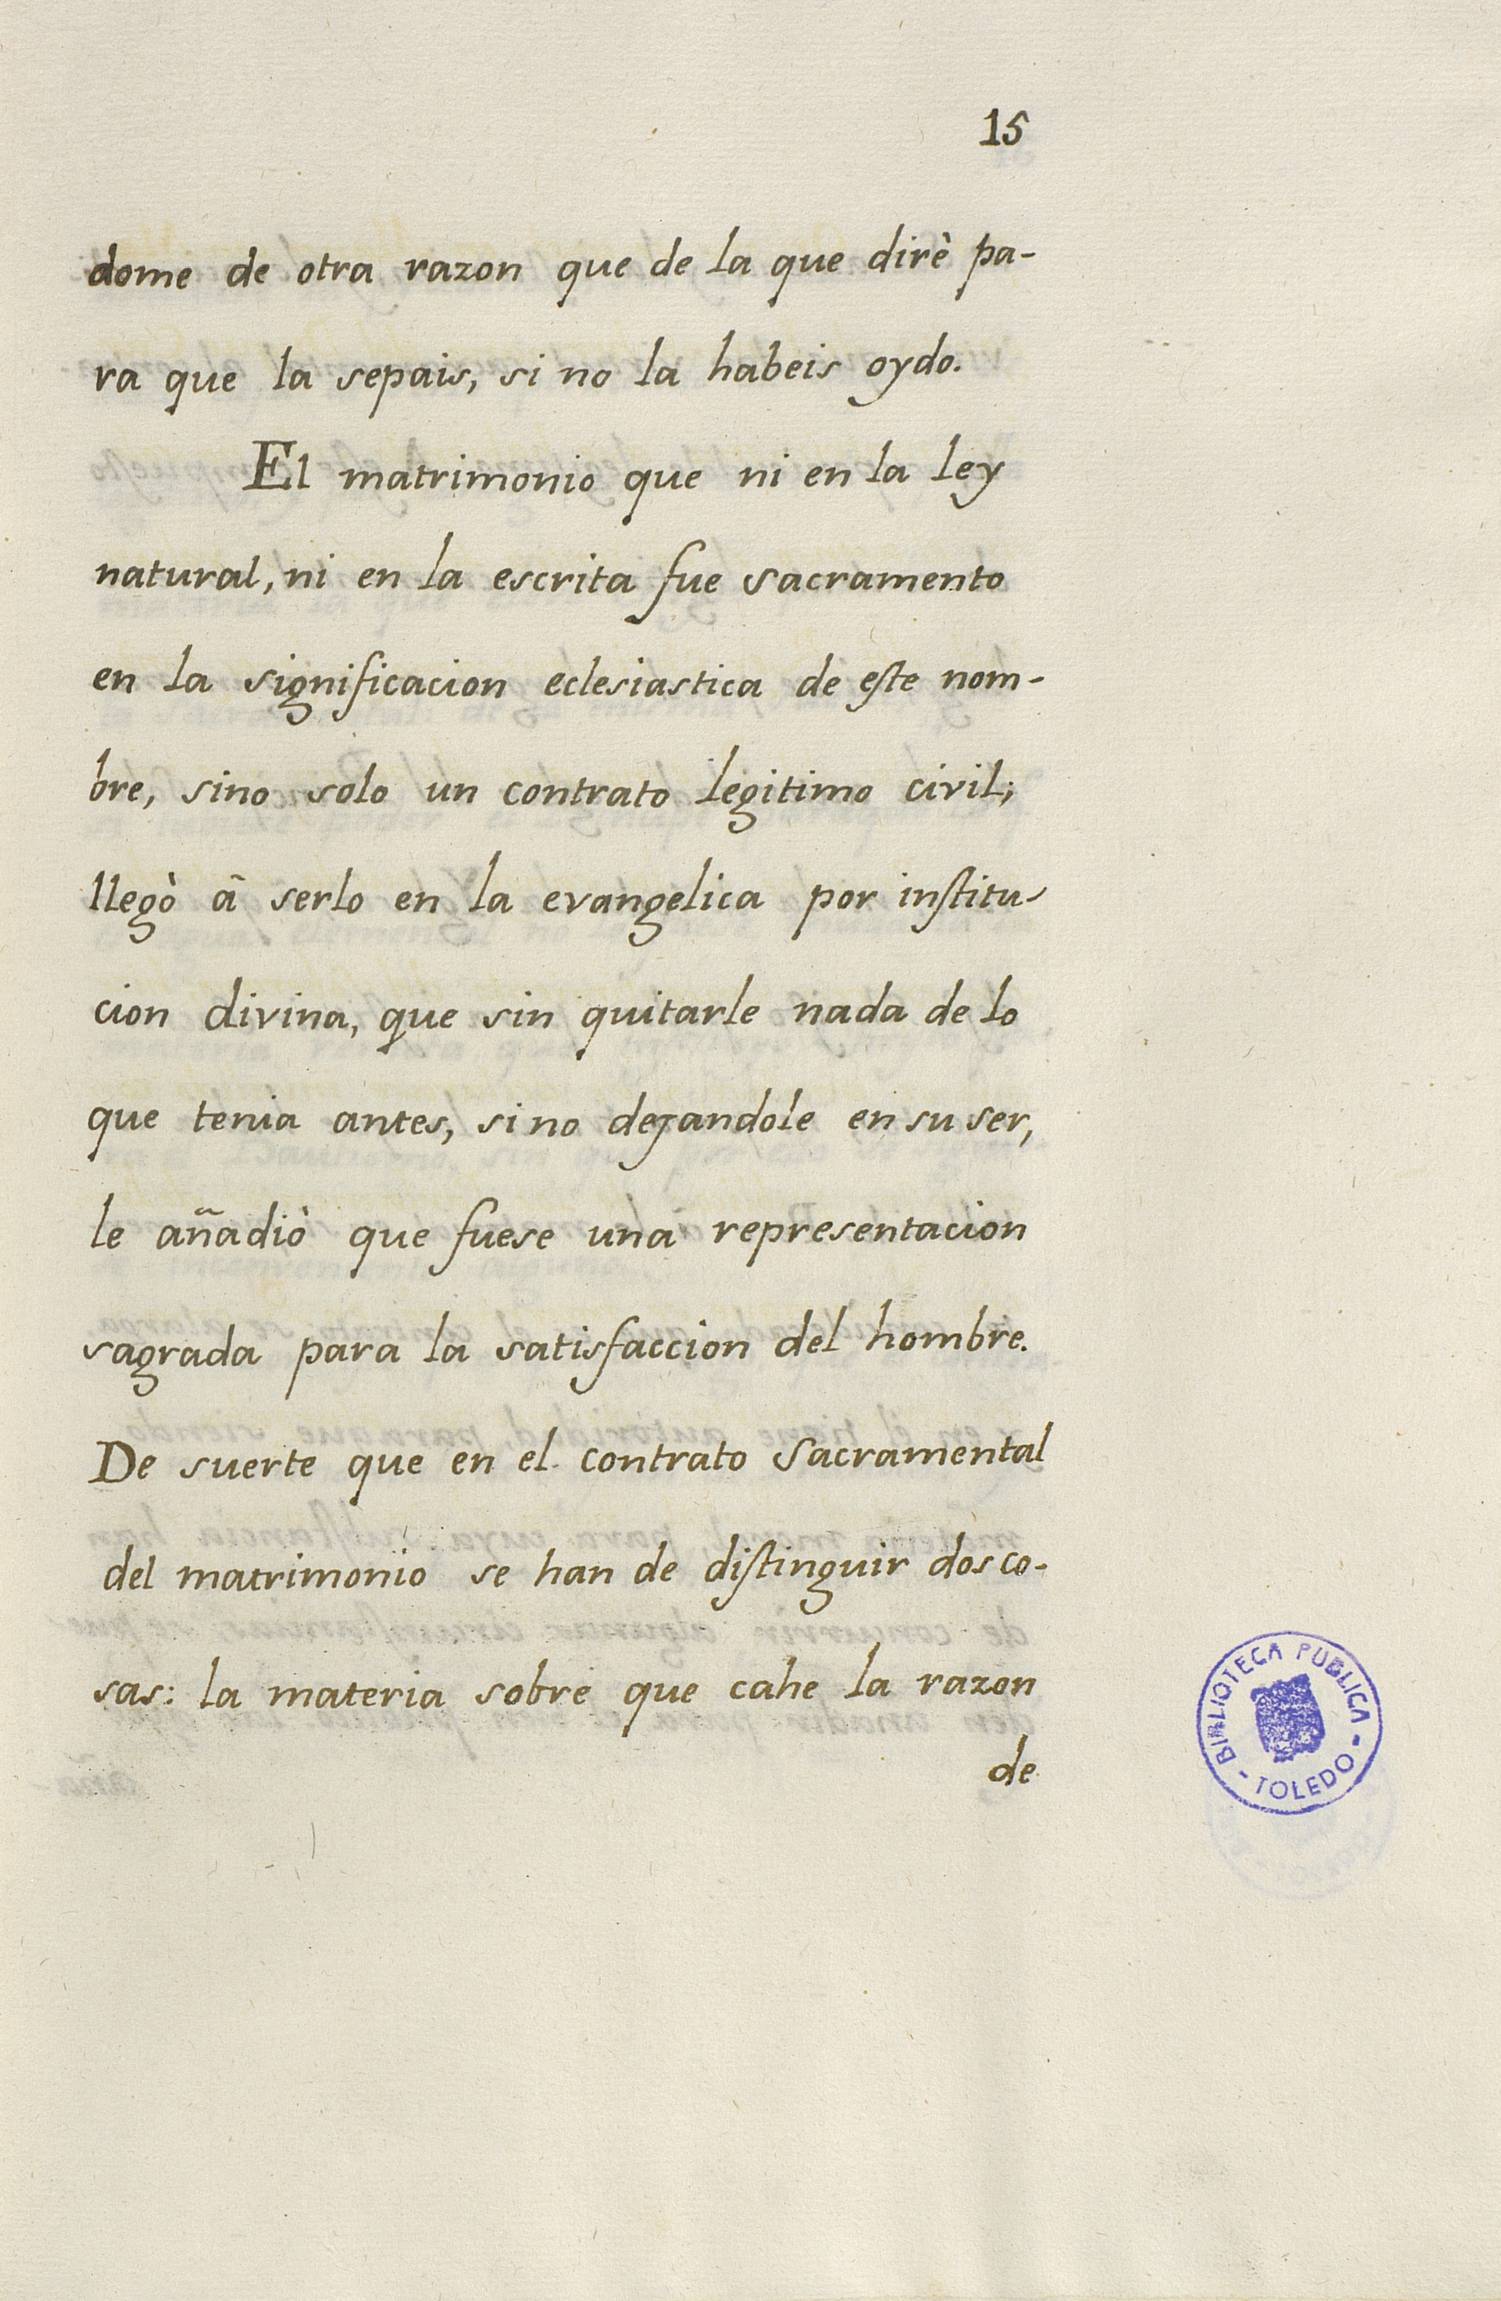 15
dome de otra razon que de la que dirè pa-
ra que la sepais, si no la habeis oydo.
El matrimonio que ni en la ley
natural, ni en la escrita fue sacramento
en la significacion eclesiastica de este nom-
bre, sino solo un contrato legitimo civil;
llegò â serlo en la evangelica por institu-
cion divina, que sin quitarle nada de lo
que tenia antes, sino dejandole en su ser,
le añadiò que fuese una representacion
sagrada para la satisfaccion del hombre.
De suerte que en el contrato sacramental
del matrimonio se han de distinguir dos co-
sas: la materia sobre que cahe la razon
de
BIBLIOTECA PUBLICA
- TOLEDO -